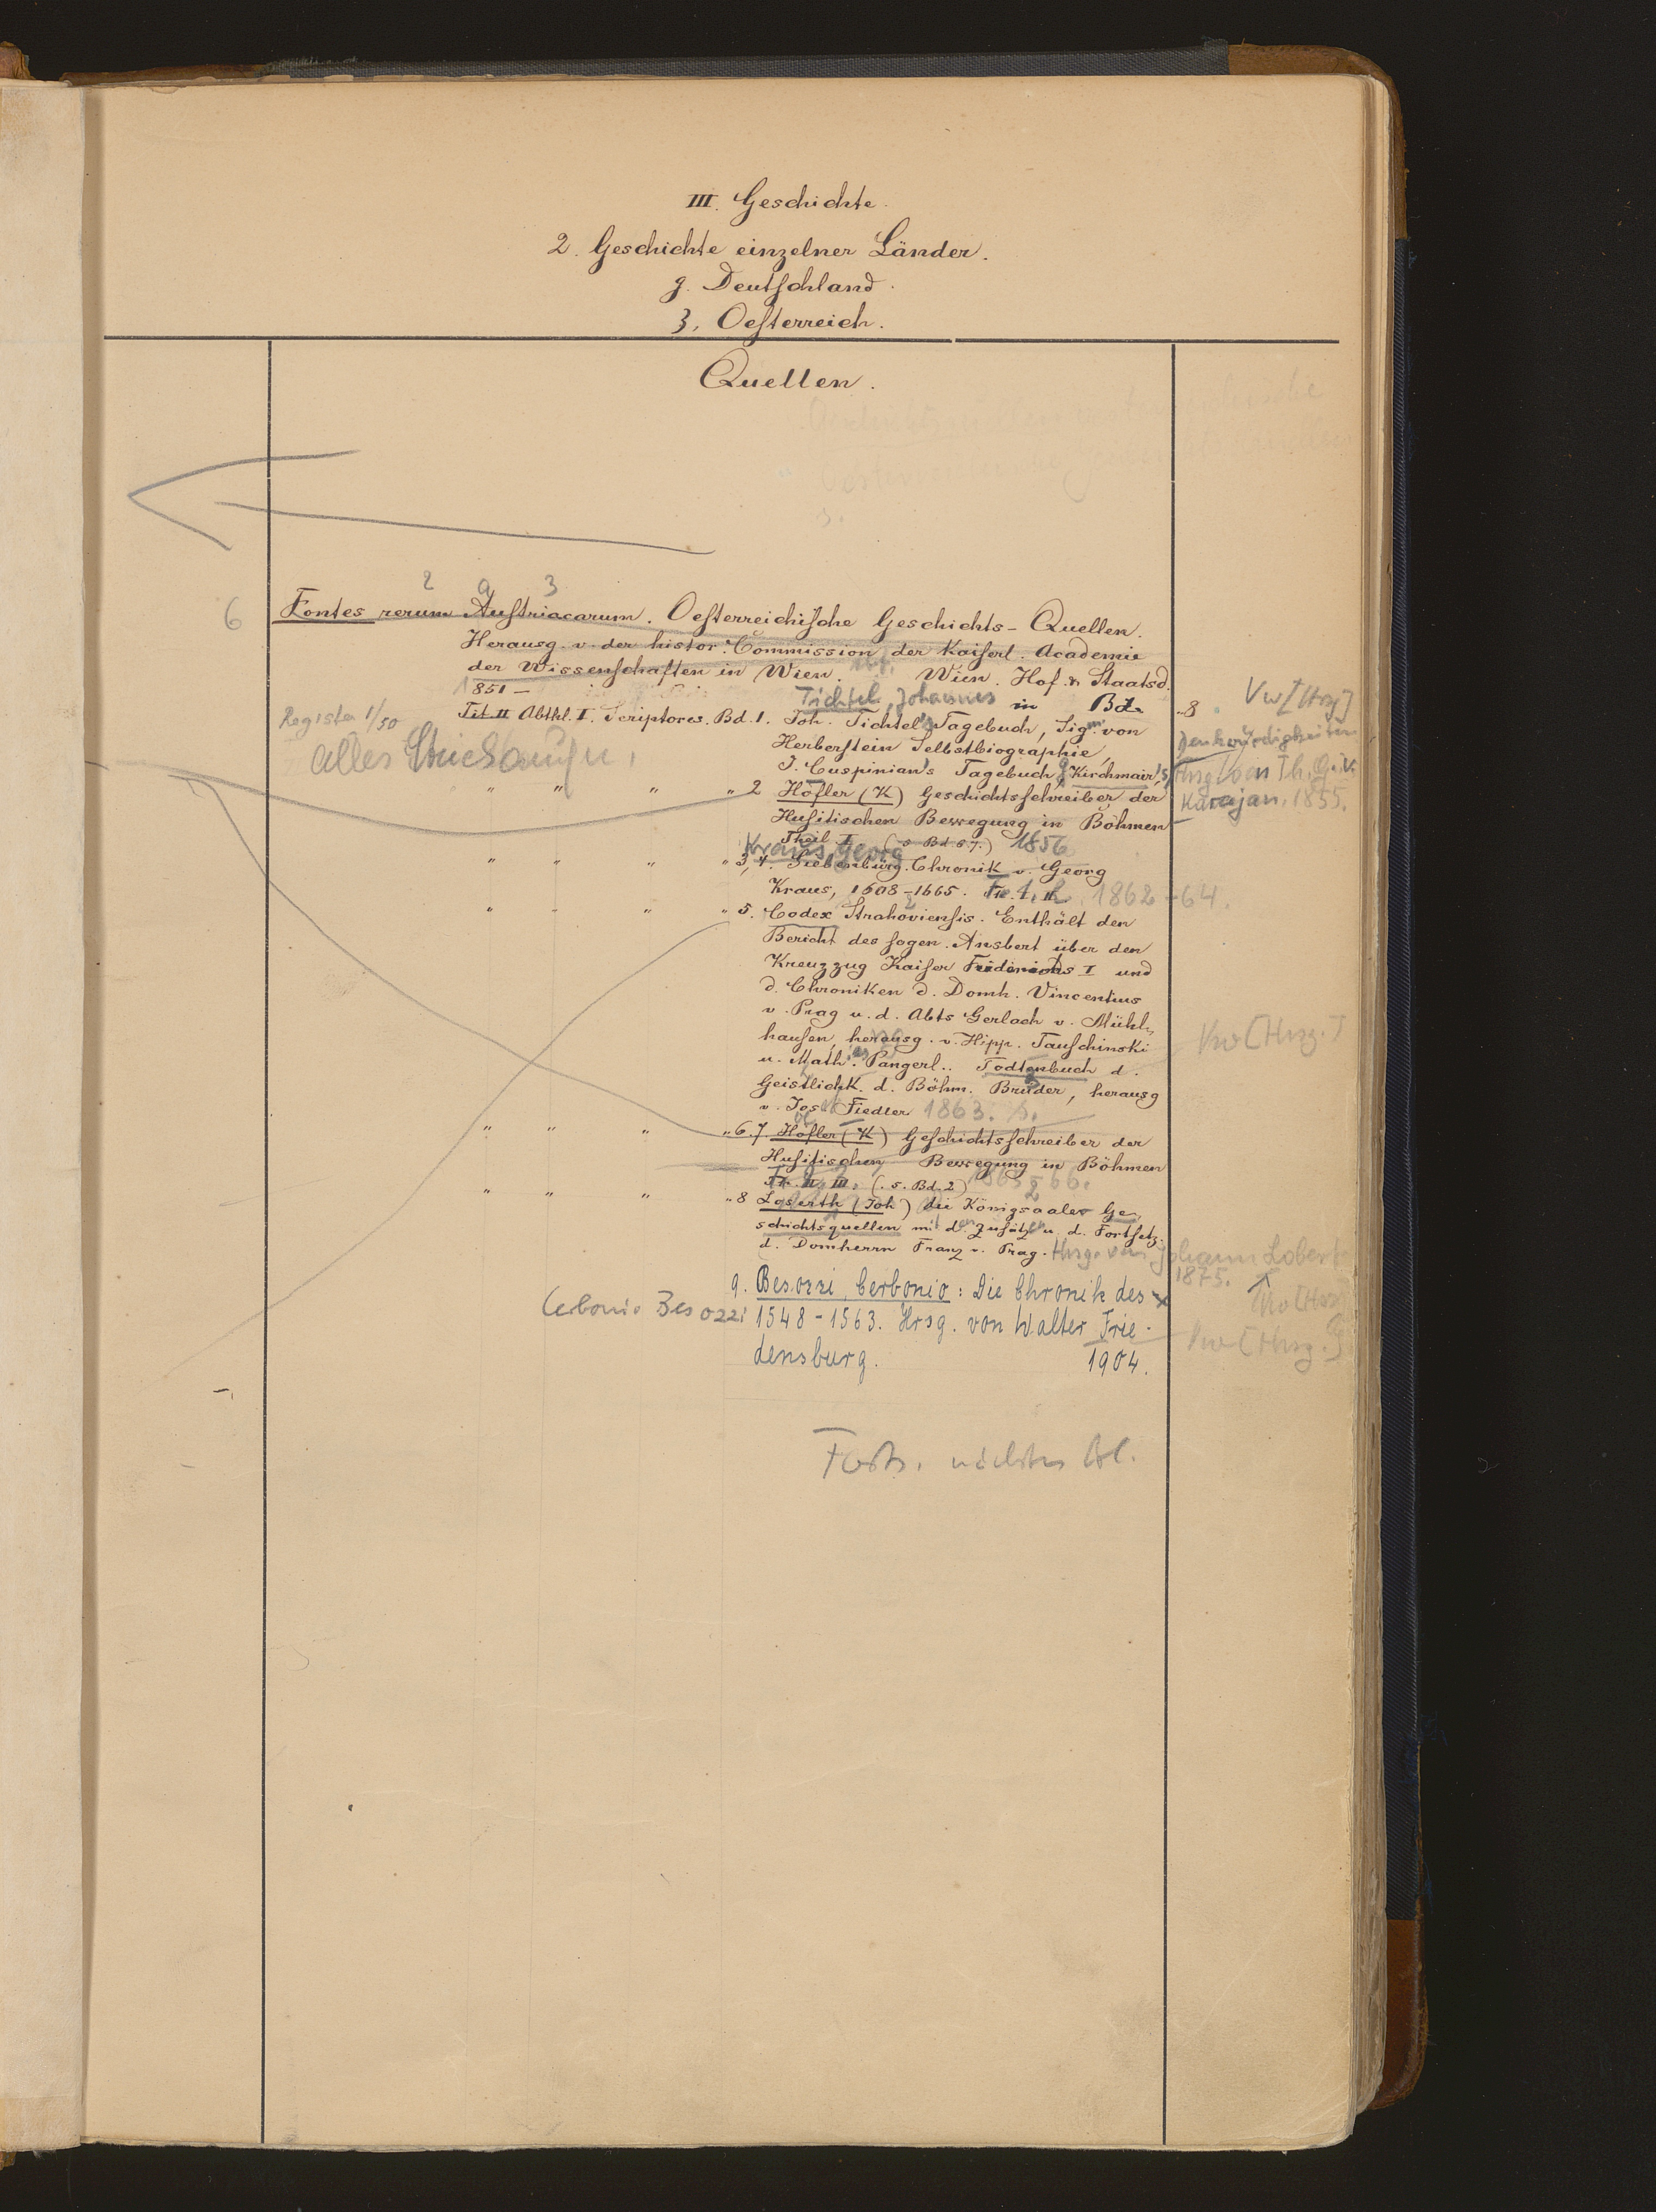 III. Geschichte.
2. Geschichte einzelner Länder.
g. Deutschland.
3. Oesterreich.
Quellen.
2 a 3
6 Fontes rerum Austriacarum. Oesterreichische Geschichts-Quellen.
Herausg. v. der histor. Commission der Kaiserl. Academie
der Wissenschaften in Wien. Wien. Hof. u. Staatsd.
1851 –
Tichtel, Johannes in Bd. 8. Vw [Hrsg]
Register 1/50
Tit II Abthl. I. Scriptores. Bd. 1. Joh. Tichtel's Tagebuch, Sigm. von
Denkwürdigkeiten
alles
Herberstein Selbstbiographie,
J. Cuspinian's Tagebuch, Kirchmair's
Hrsg. von Th. G. v.
Karajan. 1855.
" " " " 2 Höfler (K) Geschichtsschreiber der
Husitischen Bewegung in Böhmen
Theil I (s. Bd. 6.7.) 1856
Kraus, Georg
" " " " 3,4. Siebenbürg. Chronik v. Georg
Kraus, 1608-1665. 1862-64.
" " " " 5. Codex Strahoviensis. Enthält den
Bericht des sogen. Ansbert über den
Kreuzzug Kaiser Friedrichs I und
d. Chroniken d. Domh. Vincentius
v. Prag u. d. Abts Gerlach v. Mühl-
hausen, herausg. v. Hipp. Tauschinski
Vw [Hrsg.]
u. Math. Pangerl.. Todtenbuch d.
Geistlichk. d. Böhm. Brüder, herausg
v. Jos. Fiedler 1863.
" " " " 6.7. Höfler (K) Geschichtsschreiber der
Husitischen Bewegung in Böhmen
Th. II. III. (s. Bd. 2) 1865-66.
" " " " 8 Loserth (Joh) die Königsaaler Ge-
schichtsquellen mit den Zusätzen u. d. Fortsetz.
d. Domherrn Franz v. Prag. Hrsg. von Johann Loserth
1875.
Vw [Hrsg]
9. Besozzi, Cerbonio: Die Chronik des
Cerbonio Besozzi
1548-1563. Hrsg. von Walter Frie-
Vw [Hrsg.]
densburg. 1904.
Forts. nächstes Bl.